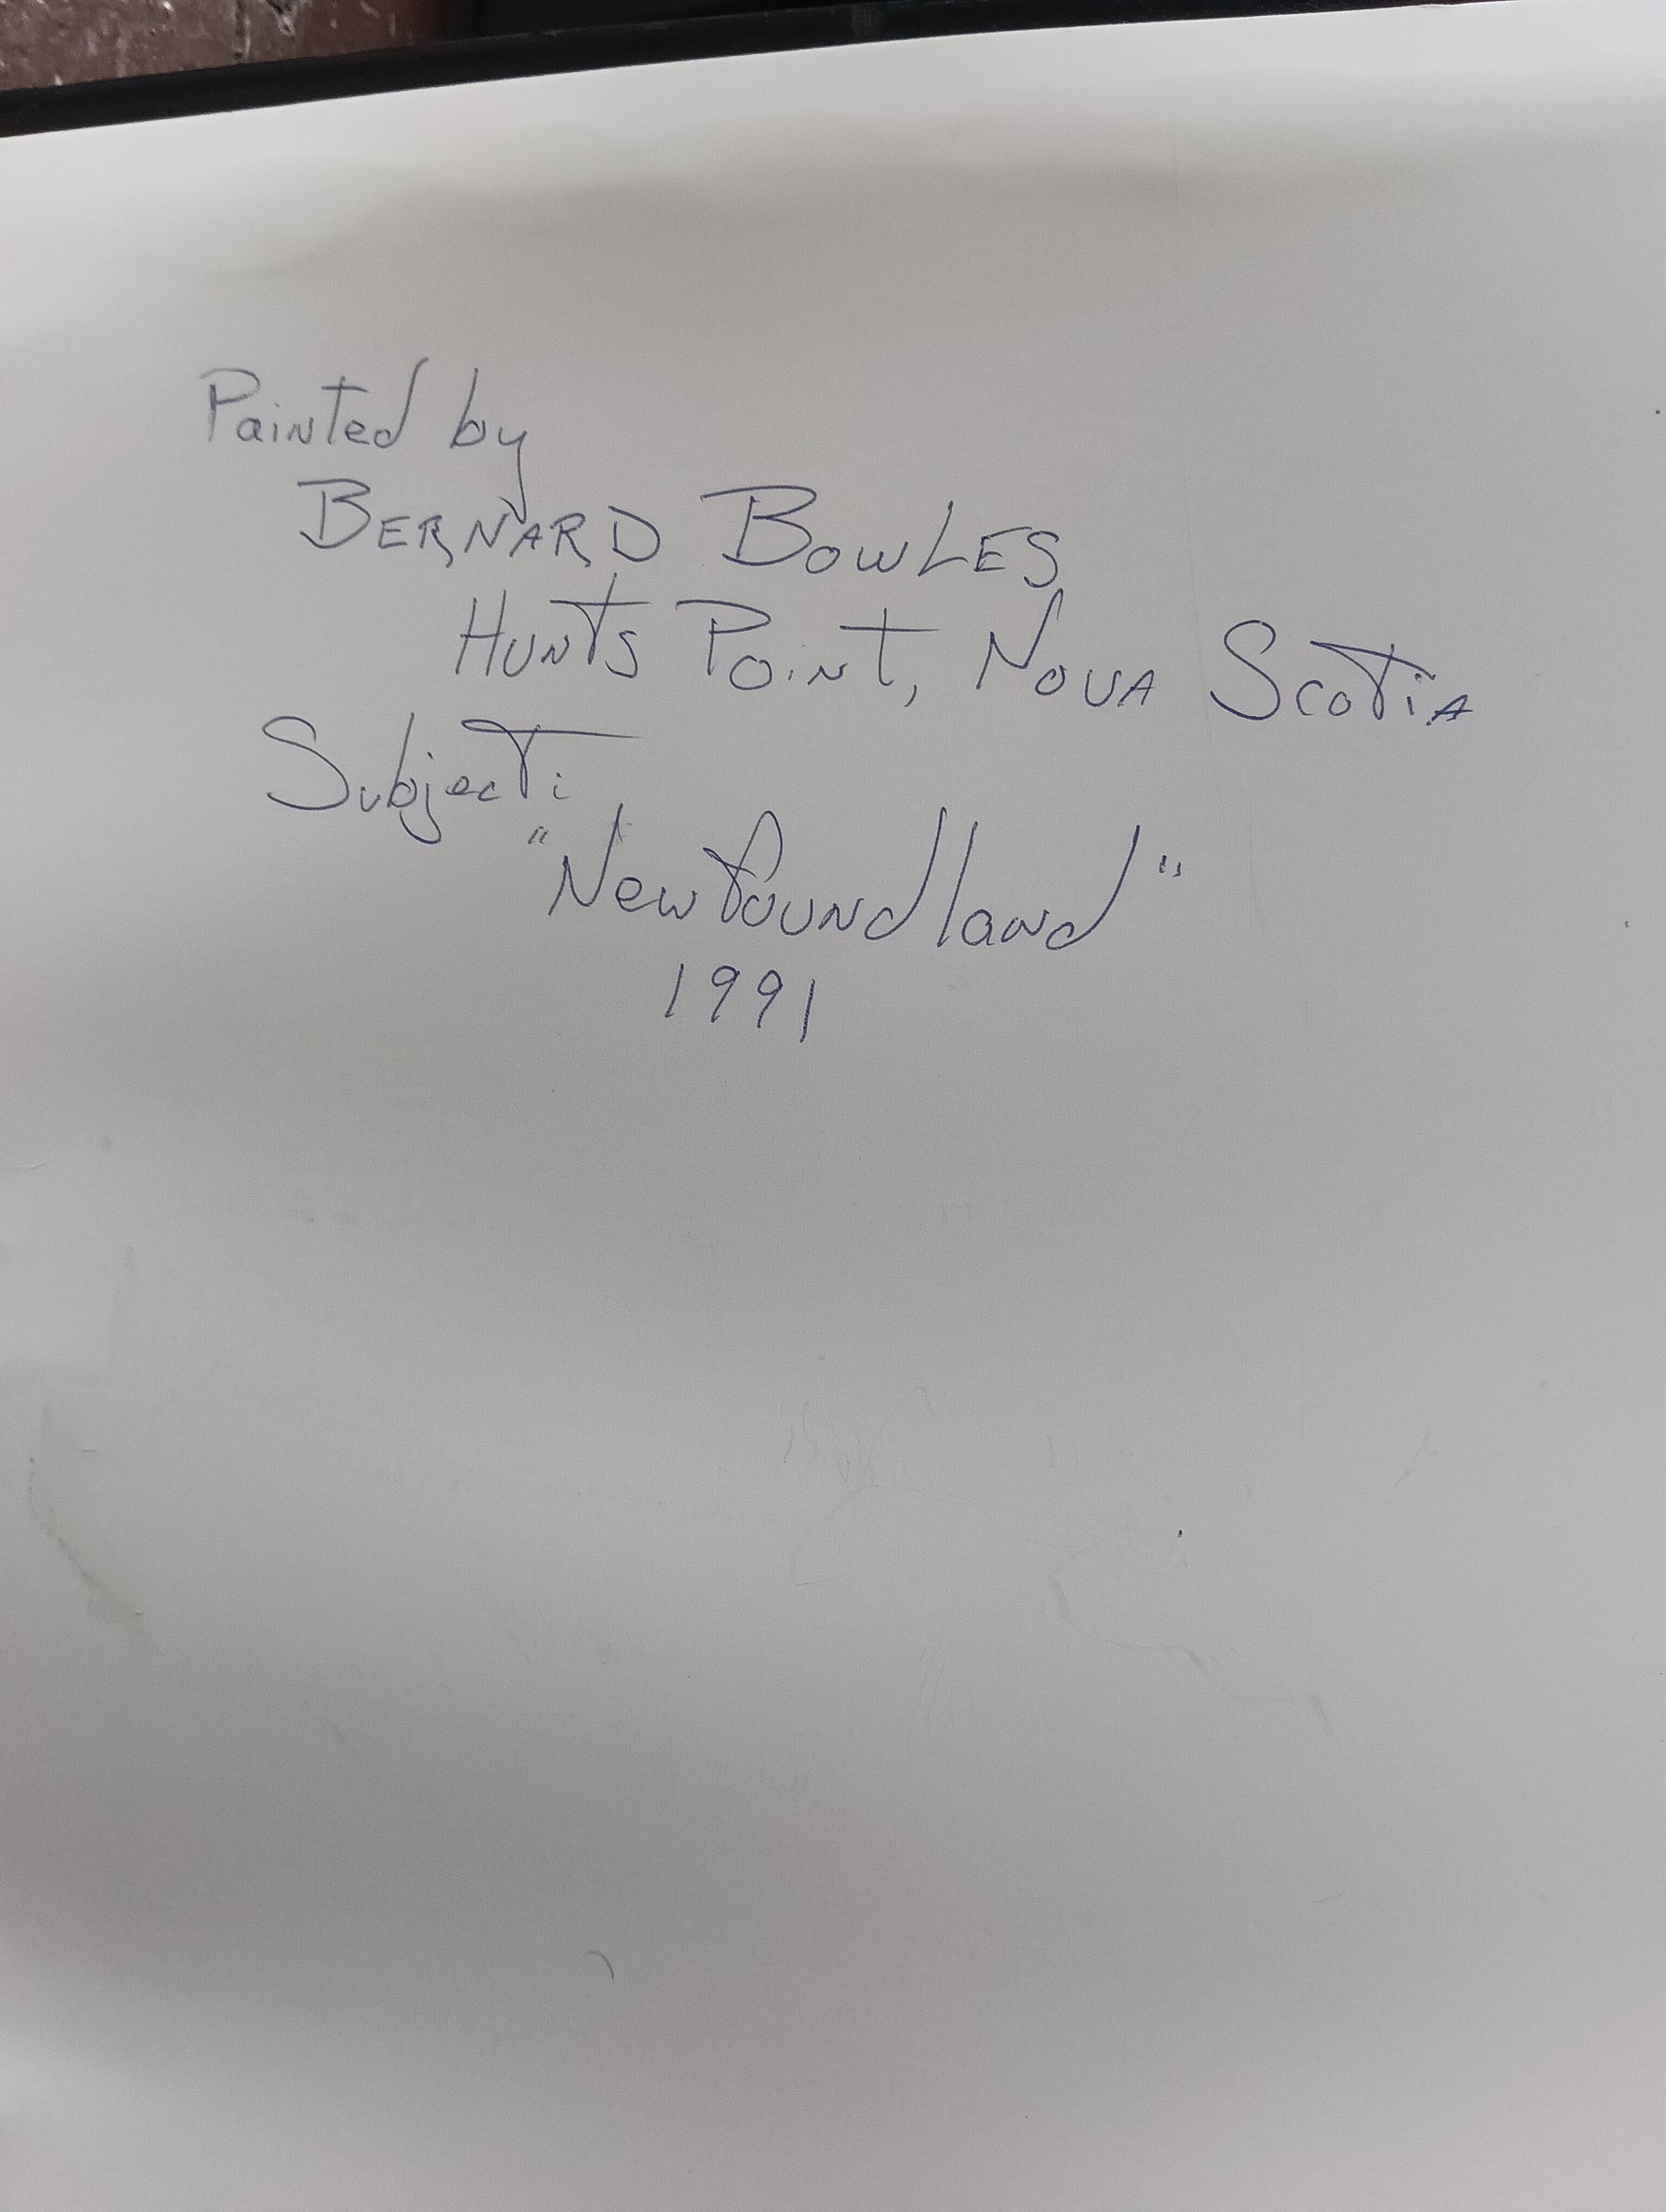 Painted by
BERNARD BOWLES
HUNTS POINT, NOVA SCOTIA
Subject:
"Newfoundland"
1991